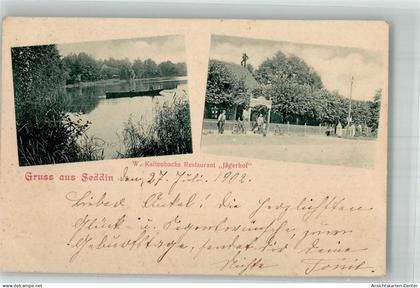 W. Kaltenbachs Restaurant „Jägerhof"
Gruss aus Seddin den 27. Juli. 1902.
Lieber Onkel! die herzlichsten
Glück- u. Segenswünsche, zum
Geburtstage, sendet dir deine
Nichte
www.ansichtskartenversand.com
Ansichtskarten-Center